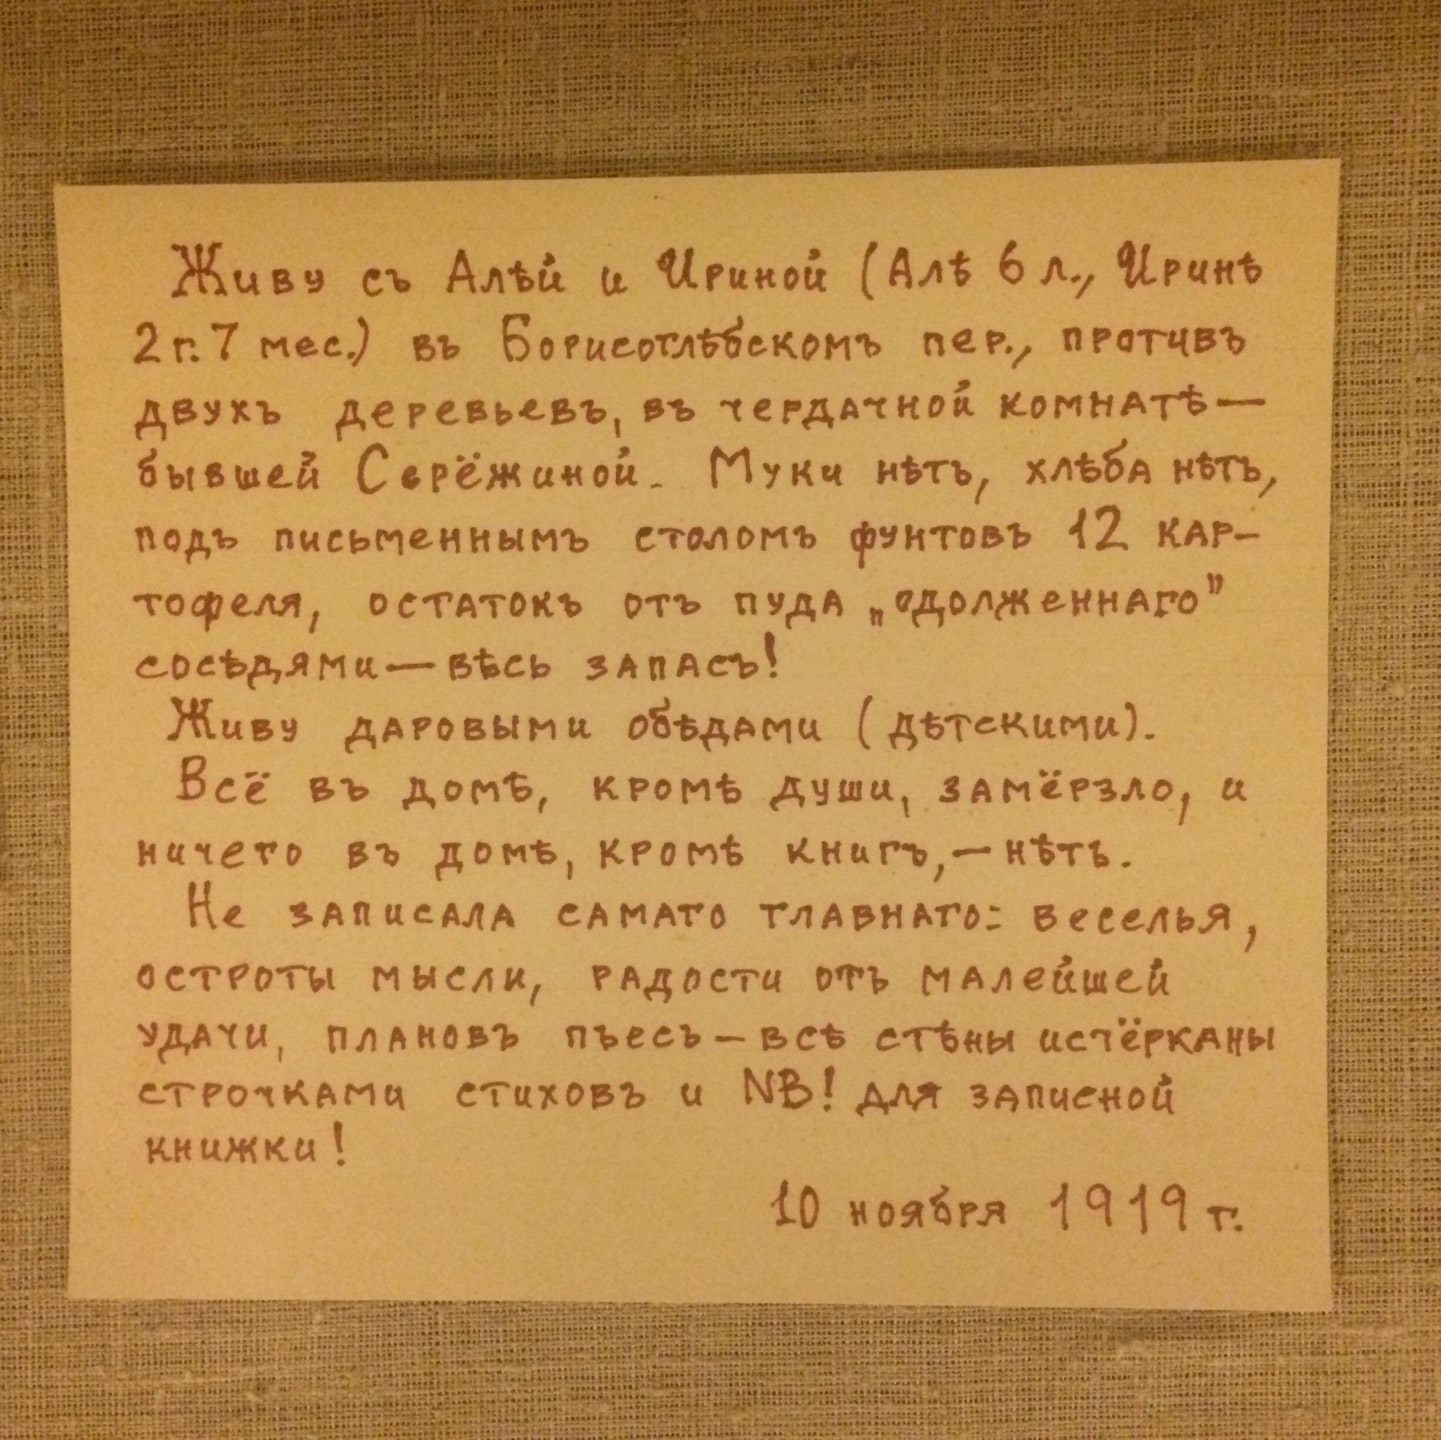 Живу съ Алѣй и Ириной (Алѣ 6 л., Иринѣ
2 г. 7 мес.) въ Борисоглѣбскомъ пер., противъ
двухъ деревьевъ, въ чердачной комнатѣ —
бывшей Серёжиной. Муки нѣтъ, хлѣба нѣтъ,
подъ письменнымъ столомъ фунтовъ 12 кар-
тофеля, остатокъ отъ пуда „одолженнаго”
сосѣдями — вѣсь запасъ!
Живу даровыми обѣдами (дѣтскими).
Всё въ домѣ, кромѣ души, замёрзло, и
ничего въ домѣ, кромѣ книгъ, — нѣтъ.
Не записала самаго главнаго: веселья,
остроты мысли, радости отъ малейшей
удачи, плановъ пъесъ — всѣ стѣны исчёрканы
строчками стиховъ и NB! для записной
книжки!
10 ноября 1919 г.